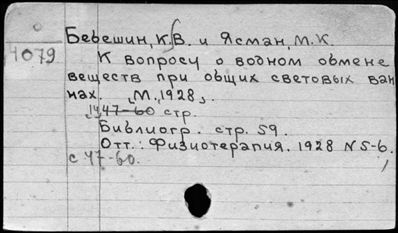 Бебешин, К.В. и Ясман, М.К.
4079
К вопросу о водном обмене
веществ при общих световых ван
нах. [М., 1928].
47-60 стр.
Библиогр. стр. 59.
Отт.: Физиотерапия. 1928 N 5-6.
с 47-60.